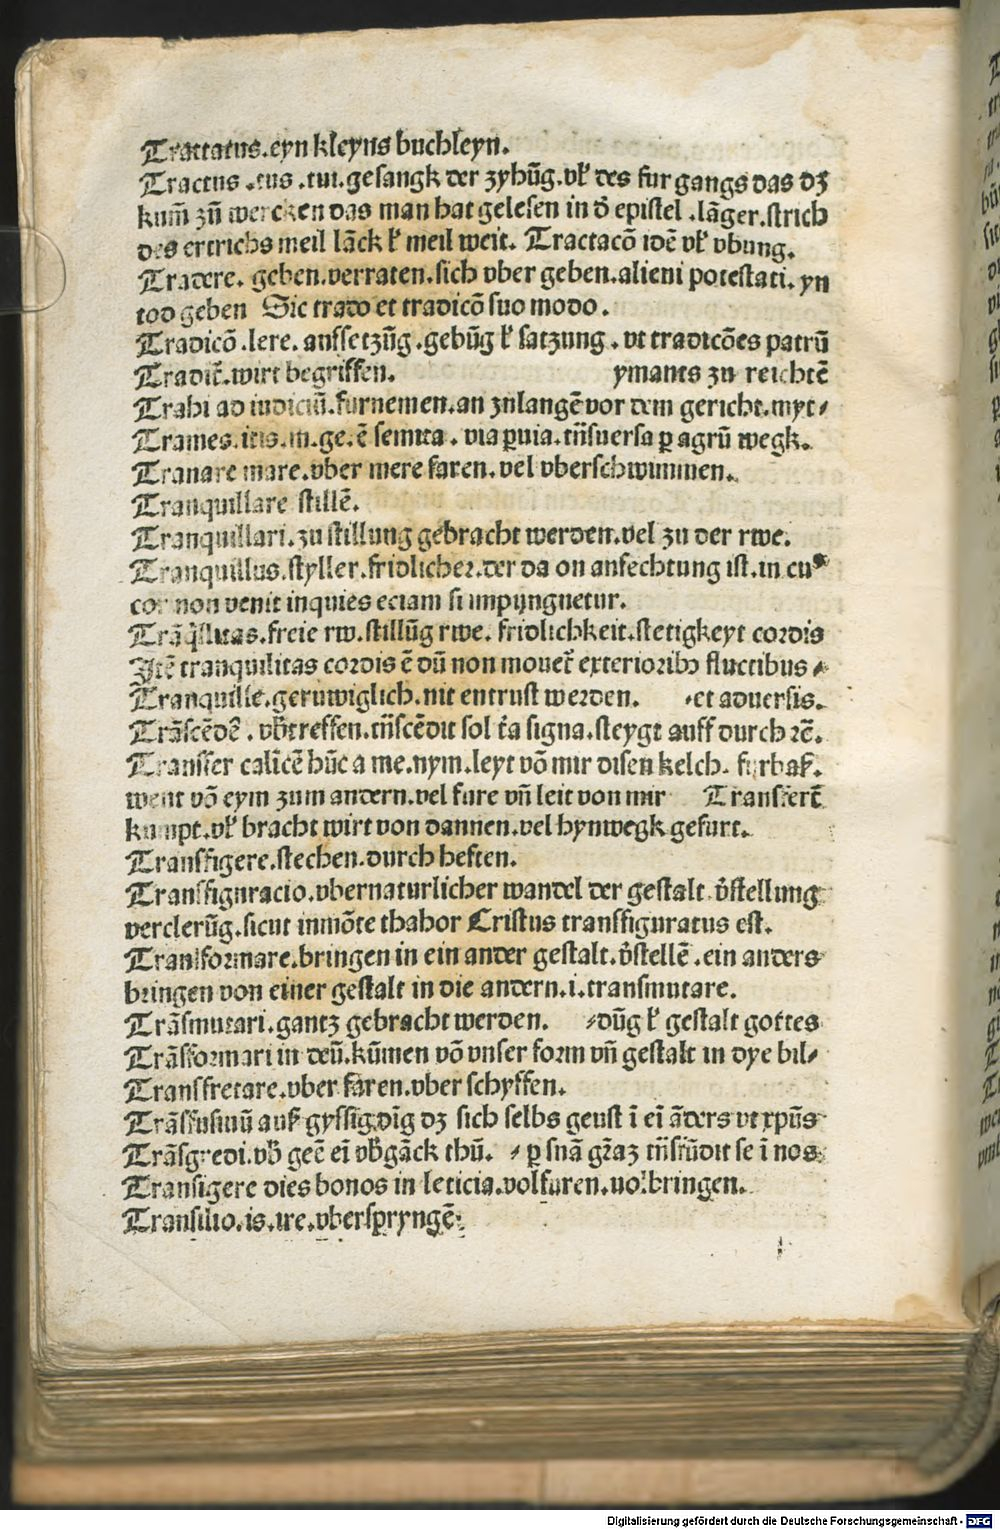 Tractatus.eyn kleyns buchleyn.
Tractus .tus .tui.gesangk der zyhūg.vƚ des fur gangs das dz
kum̄ zū wercken das man hat gelesen in d̓ epistel .lāger.strich
des ertrichs meil lāck ƚ meil weit. Tractacō idē vƚ vbung.
Tradere. geben.verraten.sich vber geben.alieni potestati. yn
tod geben Sic trado et tradicō suo modo.
Tradicō .lere. aussetzūg .gebūg ƚ satzung . vt tradicōes patrū
Tradit̄.wirt begriffen. ymants zu reichtē
Trahi ad iudiciū.furnemen.an zulangē vor dem gericht.myt⸗
Trames.itis.m.ge.ē semita . via ꝑuia.trāsuersa ꝑ agrū wegk.
Tranare mare.vber mere faren.vel vberschwimmen.
Tranquillare stillē.
Tranquillari.zu stillung gebracht werden.vel zu der rwe.
Tranquillus.styller.fridlicher.der da on anfechtung ist.in cuꝰ
cor non venit inquies eciam si impijnguetur.
Trāq̄llitas.freie rw.stillūg rwe. fridlichkeit.stetigkeyt cordis
Itē tranquilitas cordis ē dū non mouet̄ exterioribꝫ fluctibus ⸗
Tranquille.geruwiglich.nit entrust werden. ⸗et aduersis.
Trāscēdē̄ . vb̓treffen.trāscēdit sol t̄a signa.steygt auff durch ꝛc̄.
Transfer calicē hūc a me.nym.leyt vō mir disen kelch. furbaß.
went vō eym zum andern.vel fure vn̄ leit von mir Transfert̄
kumpt.vƚ bracht wirt von dannen.vel hynwegk gefurt.
Transfigere.stechen.durch heften.
Transfiguracio.vbernaturlicher wandel der gestalt v̓stellung
verclerūg.sicut inmōte thabor Cristus transfiguratus est.
Transformare.bringen in ein ander gestalt.v̓stellē .ein anders
bringen von einer gestalt in die andern.i.transmutare.
Trāsmutari.gantz gebracht werden. ⸗dūg ƚ gestalt gottes
Trāsformari in deū.kūmen vō vnser form vn̄ gestalt in dye bil⸗
Transfretare.vber faren.vber schyffen.
Trāsfusiuū auß gyssig.dīg dz sich selbs geust ī eī āders vt xp̄us
Trāsgredi.vb̓ geē eī vb̓gāck thū. ⸗ ꝑ suā gr̄az trāsfūdit se ī nos
Transigere dies bonos in leticia.volfuren.uolbringen.
Transilio.is.ire.vberspryngē
Digitalisierung gefördert durch die Deutsche Forschungsgemeinschaft - DFG